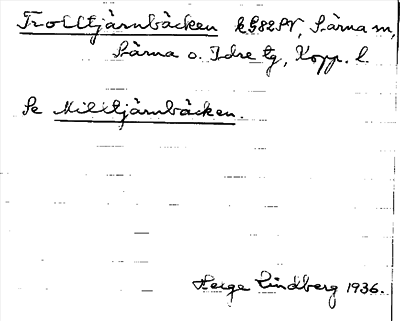 Trolltjärnbäcken k G82SV, Särna m,
Särna o. Idre tg, Kopp. l.
Se Milltjärnbäcken.
Helge Lindberg 1936.